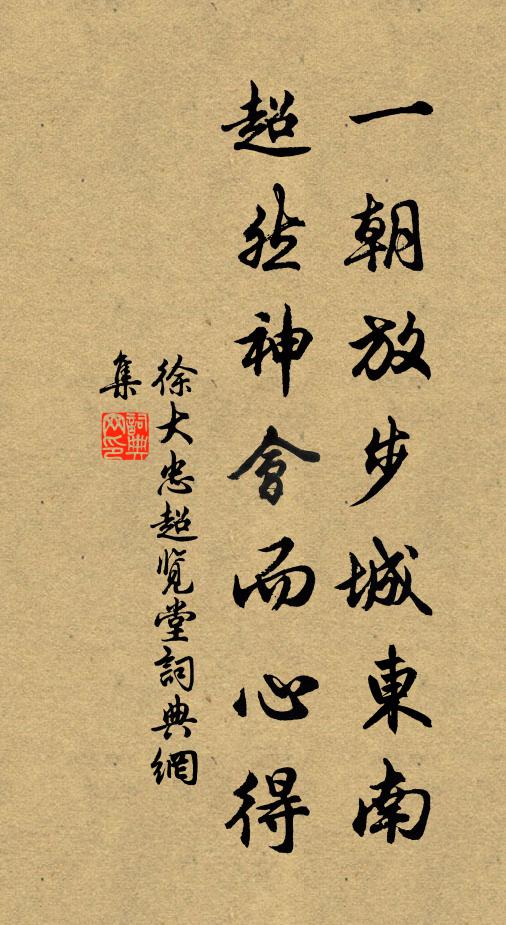 一朝放步城東南
超然神會而心得
徐大忠超覧堂詞典網
集
詞典網印